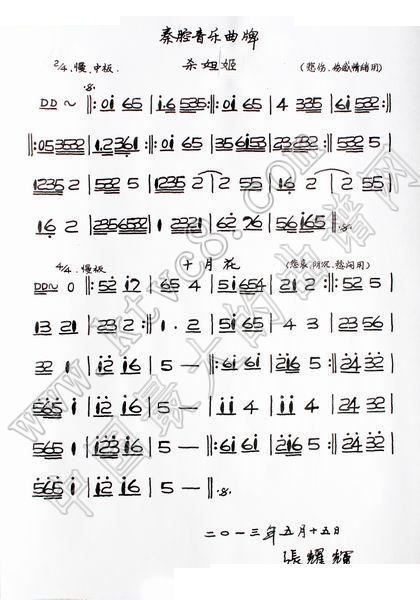 秦腔音乐曲牌
杀妲姬
2/4. 慢.中板.
(悲伤、伤感情绪用)
DD～ ‖: 0i 65 | i.6 535 :‖: 0i 65 | 4 335 | 6i 532 :‖
‖: 05 3532 | 1.2 361 :‖: 0i 65 | 35 6153 | 23 232 :‖: 532 5 |
1235 2 | 532 5 | 1235 2 | 2 532 5 | 16 2 | 2 532 5 |
16 2 | 1235 2 | 1 2221 | 62 76 | 56 165 ‖
十月花
4/4. 慢板
DD～ 0 ‖: 52 i7 | 65 4 | 5i 654 | 21 2 :‖: 52 5 |
13 21 | 23 2 :‖: 1 . 2 | 5i 65 | 4 3 | 23 56 |
32 i | i2 i6 | 5 — :‖: 6i 6i | 2i6 5 | 24 32 |
565 i | i2 i6 | 5 — | ii 4 | ii 4 | 24 32 |
565 i | i23 i6 | 5 — :‖: 6i 6i | 2i6 5 :‖: 24 32 |
565 i | i2 i6 | 5 — ‖
二〇一三年五月十五日
張耀輝
www.ktvc8.com
中国最大的曲谱网